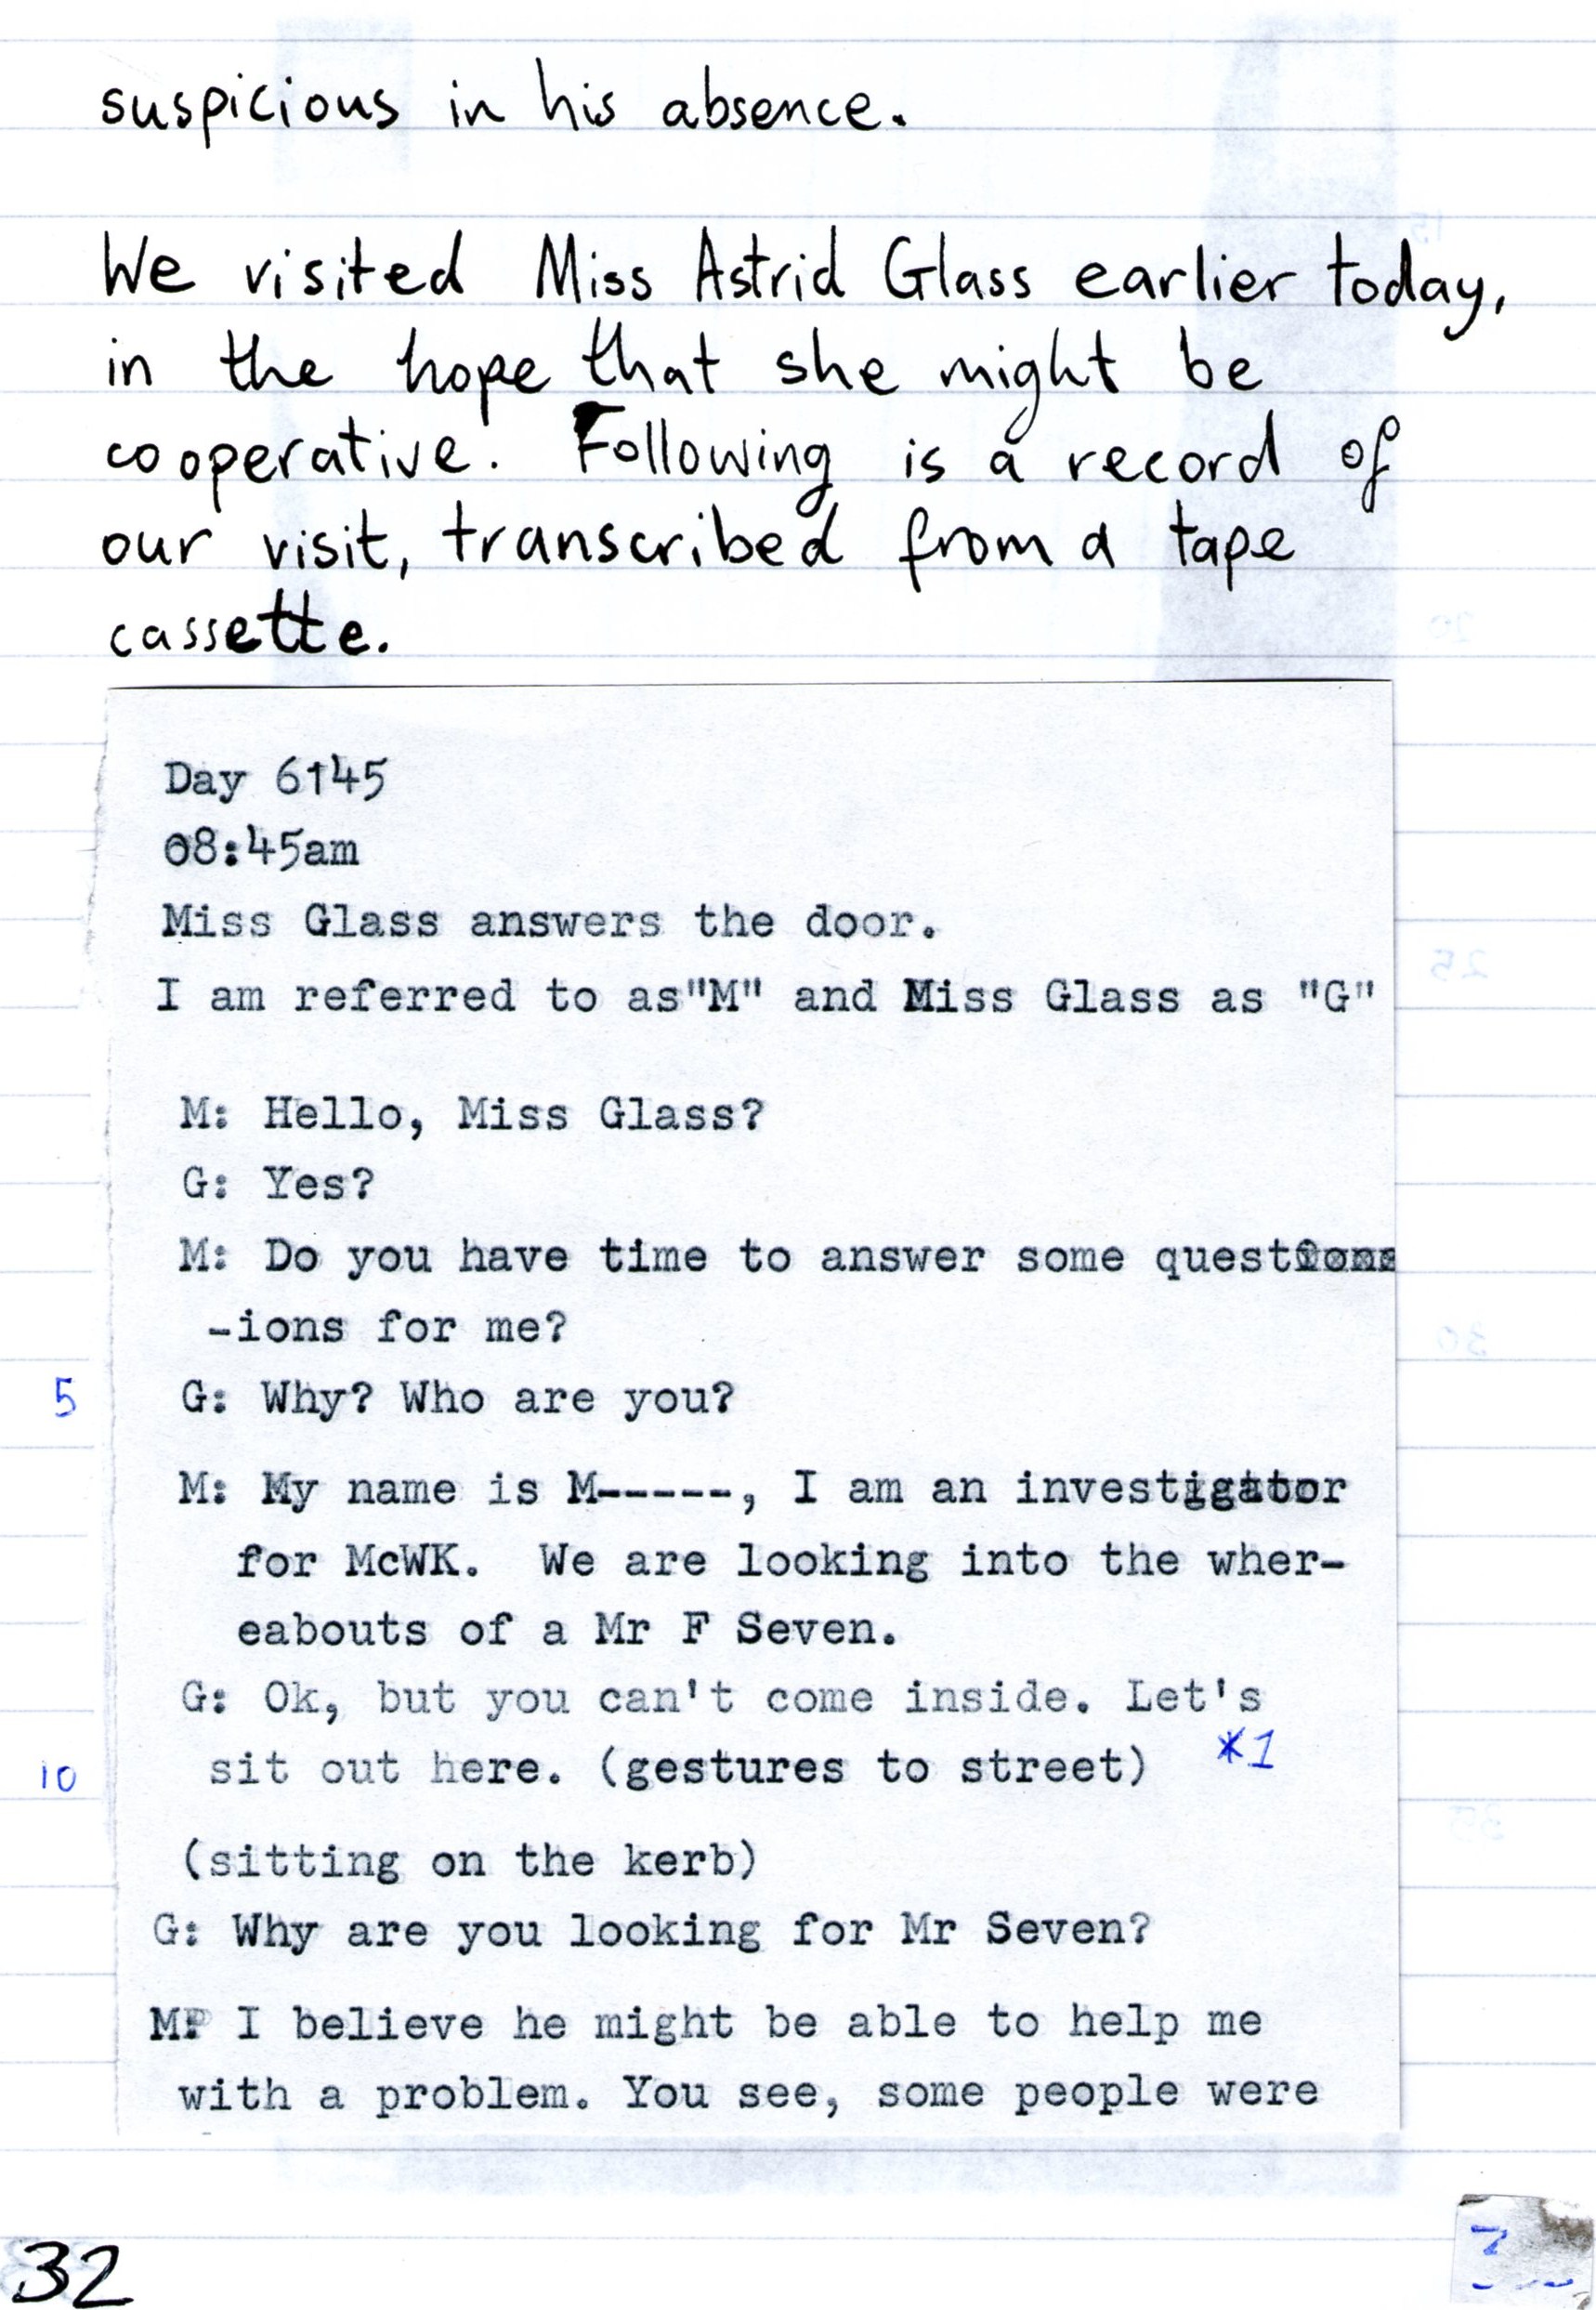 suspicious in his absence.
We visited Miss Astrid Glass earlier today,
in the hope that she might be
cooperative. Following is a record of
our visit, transcribed from a tape
cassette.
Day 6145
08:45am
Miss Glass answers the door.
I am referred to as"M" and Miss Glass as "G"
M: Hello, Miss Glass?
G: Yes?
M: Do you have time to answer some quest
-ions for me?
5 G: Why? Who are you?
M: My name is M-----, I am an investigator
for McWK. We are looking into the wher-
eabouts of a Mr F Seven.
G: Ok, but you can't come inside. Let's
10 sit out here. (gestures to street) *1
(sitting on the kerb)
G: Why are you looking for Mr Seven?
M: I believe he might be able to help me
with a problem. You see, some people were
32